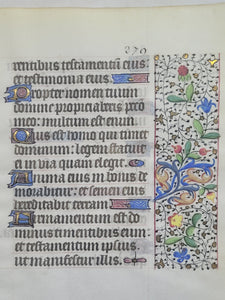 270
rentibus testamentū eius:
et testimonia eius.
Propter nomen tuum
domine propiciaberis pecca
meo: multum est enim.
Quis est homo qui timet
dominum: legem statuit
ei in via quam elegit.
Anima eius in bonis de
morabitur: et semen eius
hereditabit terram.
Firmamentum est do
minus timentibus eum
et testamentum ipsius
ut manifestetur illis.